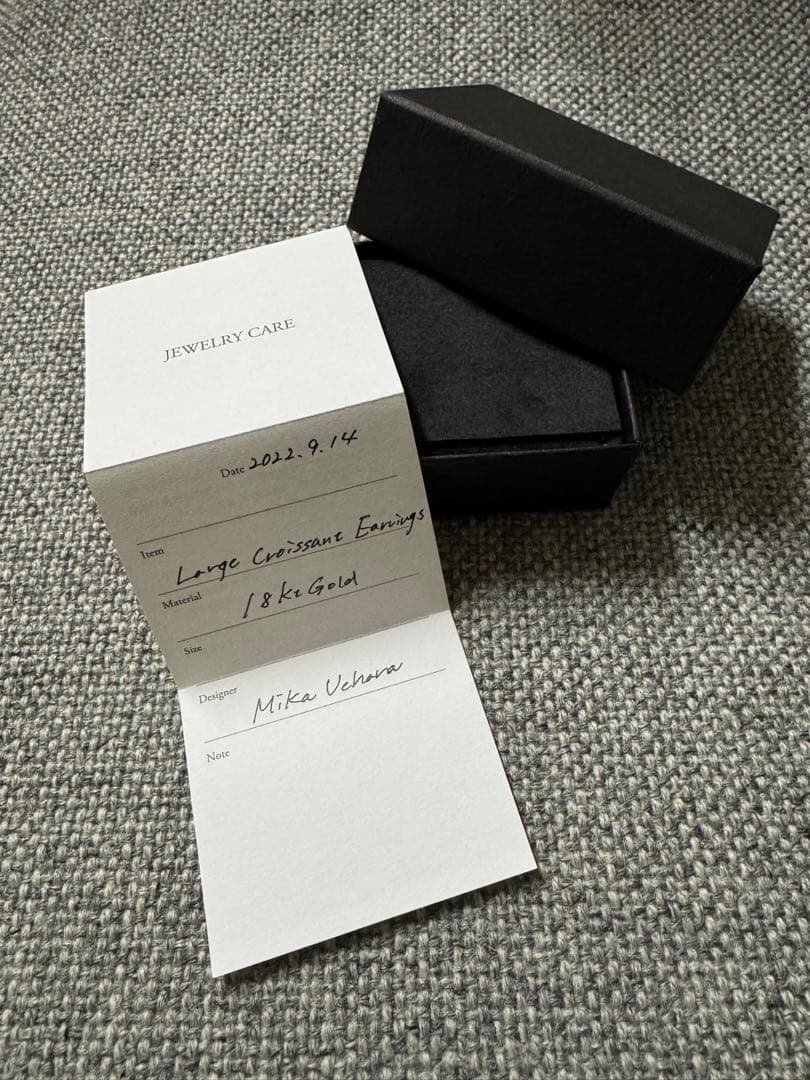 JEWELRY CARE
Date 2022.9.14
Item Large Croissant Earrings
Material 18Kt Gold
Size
Designer Mika Uehara
Note